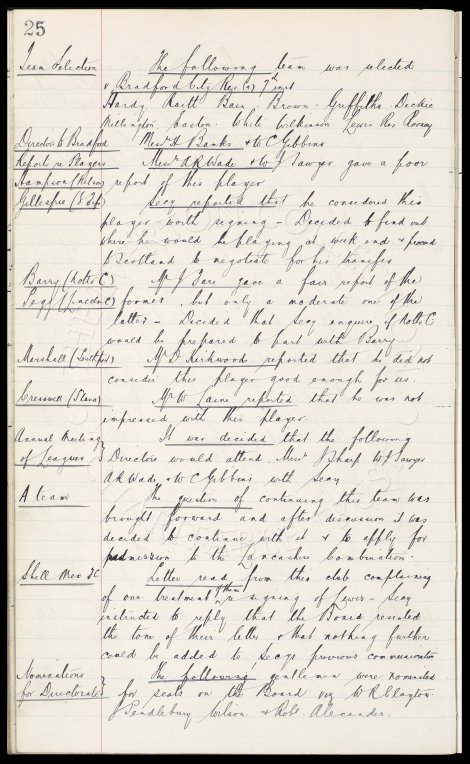 25
Team Selection The following team was selected
v Bradford City Res (a) 7th inst
Hardy Raitt Bain Brown. Griffiths. Dickie
Millington, Easton. White Wilkinson Lewis Res Rooney
Director to Bradford Messrs H Banks & W C Gibbins
Reports re Players Messrs A R Wade & W J Sawyer gave a poor
Hampson (Nelson) report of this player
Gillespie (S. Stn) Secy reported that he considered this
player worth signing – Decided to find out
where he would be playing at week end & proceed
to Scotland to negotiate for his transfer
Barry (Notts C) Mr J Fare gave a fair report of the
Legg (Lincoln C) former, but only a moderate one of the
latter – Decided that Secy enquire if Notts C
would be prepared to part with Barry
Marshall (Southport) Mr D Kirkwood reported that he did not
consider this player good enough for us.
Cresswell (Staves) Mr W Laine reported that he was not
impressed with this player.
Annual Meeting It was decided that the following
of Leagues Directors would attend. Messrs J Sharp W J Sawyer
A R Wade & W C Gibbins with Secy
A team The question of continuing this team was
brought forward and after discussion it was
decided to continue with it & to apply for
admission to the Lancashire Combination.
Shell Mex FC Letter read from this club complaining
of our treatment of them re signing of Lewis – Secy
instructed to reply that the Board resented
the tone of their letter & that nothing further
could be added to Secys previous communication
Nominations The following gentlemen were nominated
for Directorate for seats on the Board viz W R Clayton
J Pendlebury Wilson & Robt Alexander.